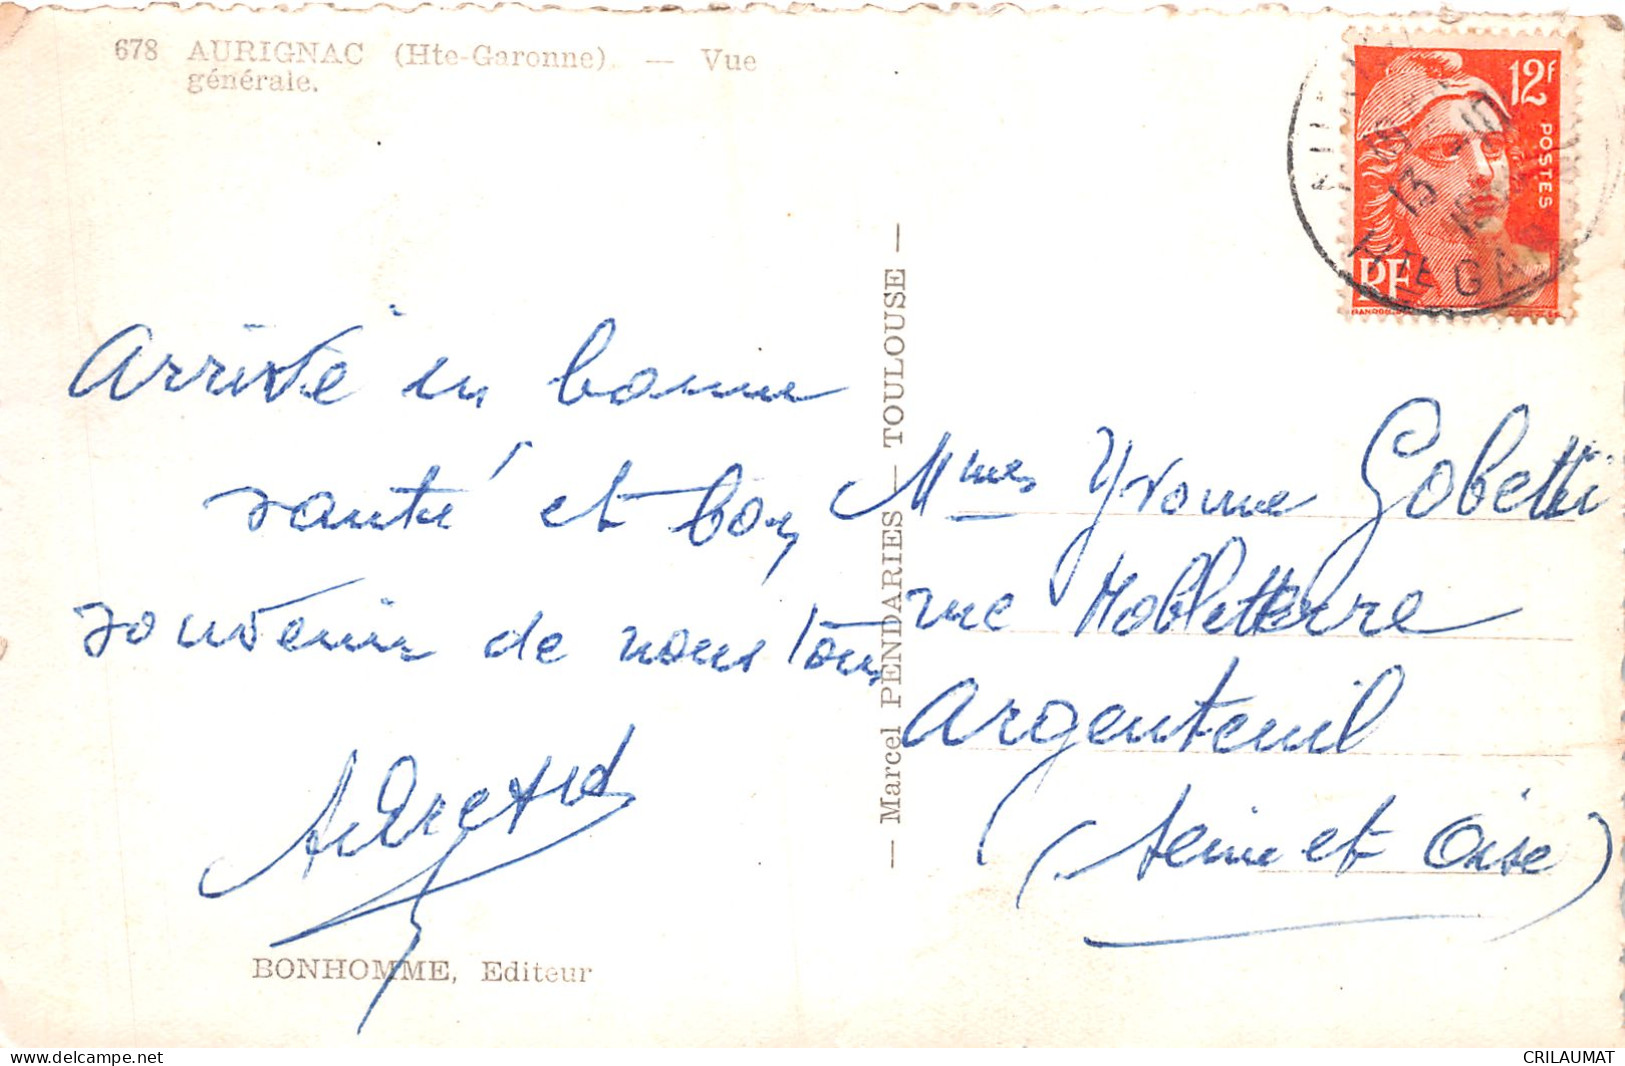 678 AURIGNAC (Hte-Garonne). — Vue
générale.
12f
POSTES
RF
13
HTE GAR
Arrivé en bonne
santé et bon
souvenir de nous tous
BONHOMME, Editeur
— Marcel PENDARIES — TOULOUSE —
Mmes Yvonne Gobetti
rue
Argenteuil
(Seine et Oise)
www.delcampe.net
CRILAUMAT